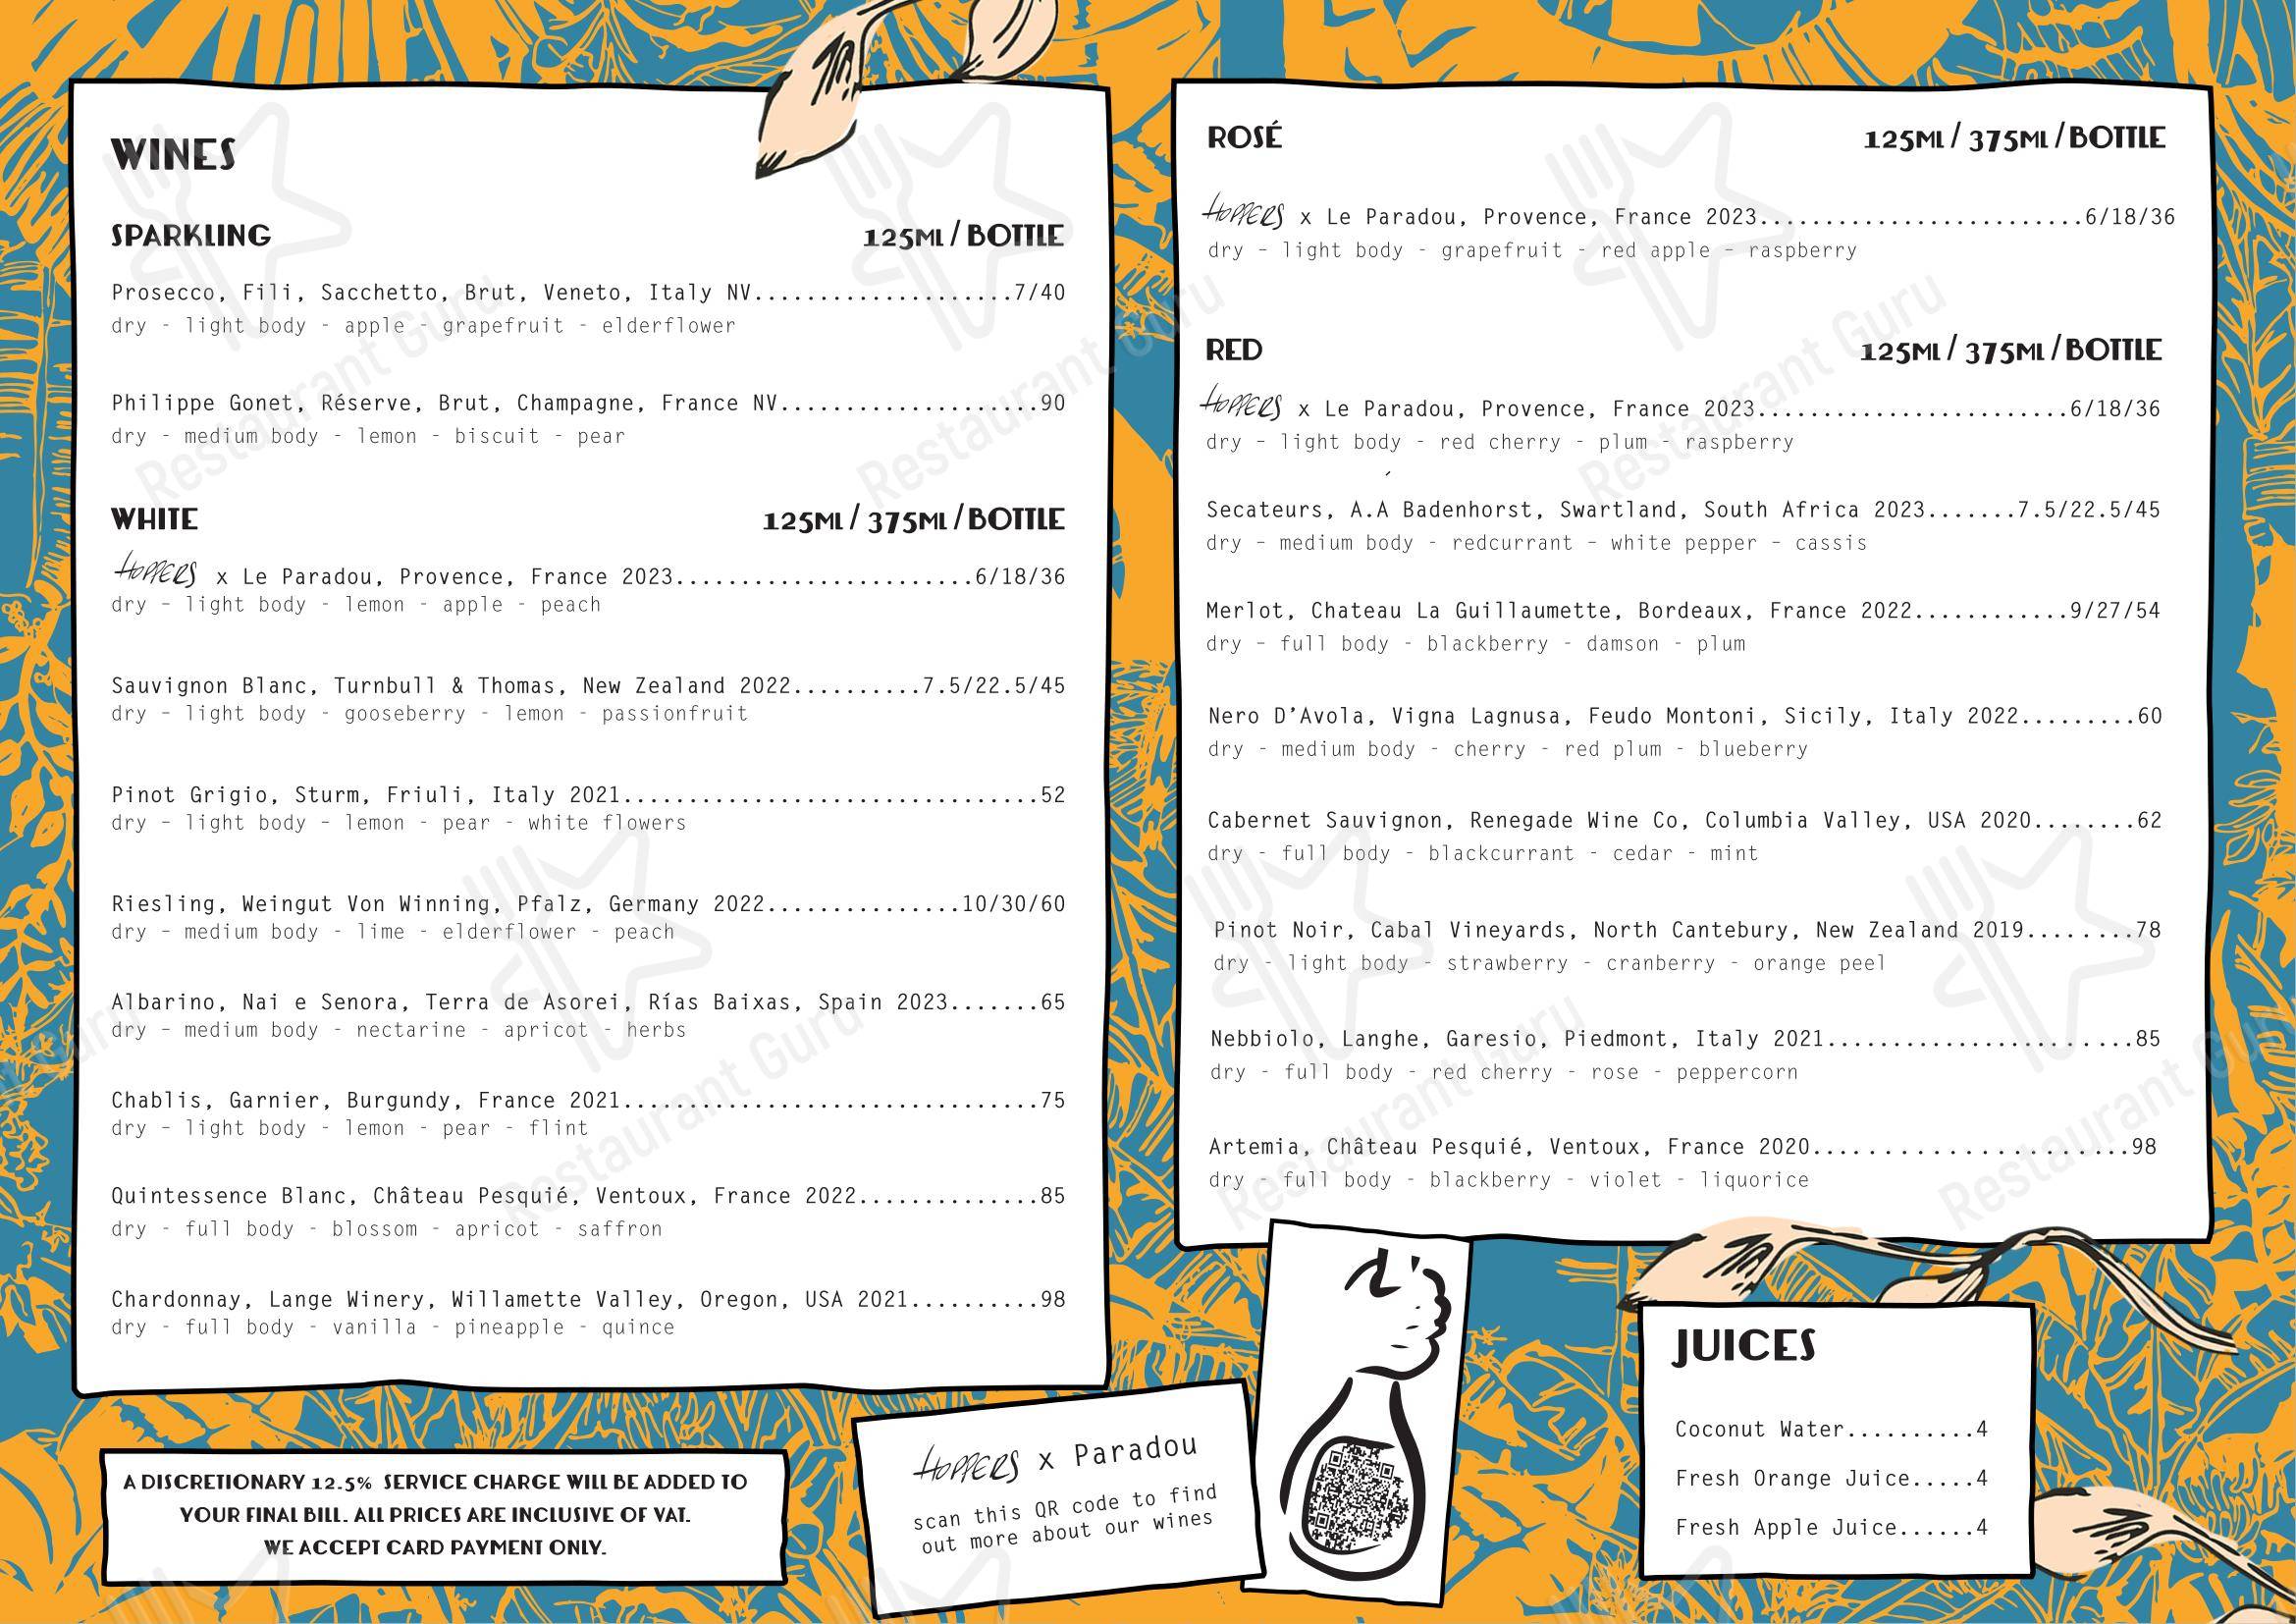 WINES
SPARKLING 125ML / BOTTLE
Prosecco, Fili, Sacchetto, Brut, Veneto, Italy NV....................7/40
dry - light body - apple - grapefruit - elderflower
Philippe Gonet, Réserve, Brut, Champagne, France NV....................90
dry - medium body - lemon - biscuit - pear
WHITE 125ML / 375ML / BOTTLE
HOPPERS x Le Paradou, Provence, France 2023.......................6/18/36
dry - light body - lemon - apple - peach
Sauvignon Blanc, Turnbull & Thomas, New Zealand 2022..........7.5/22.5/45
dry - light body - gooseberry - lemon - passionfruit
Pinot Grigio, Sturm, Friuli, Italy 2021................................52
dry - light body - lemon - pear - white flowers
Riesling, Weingut Von Winning, Pfalz, Germany 2022...............10/30/60
dry - medium body - lime - elderflower - peach
Albarino, Nai e Senora, Terra de Asorei, Rías Baixas, Spain 2023.......65
dry - medium body - nectarine - apricot - herbs
Chablis, Garnier, Burgundy, France 2021................................75
dry - light body - lemon - pear - flint
Quintessence Blanc, Château Pesquié, Ventoux, France 2022..............85
dry - full body - blossom - apricot - saffron
Chardonnay, Lange Winery, Willamette Valley, Oregon, USA 2021..........98
dry - full body - vanilla - pineapple - quince
A DISCRETIONARY 12.5% SERVICE CHARGE WILL BE ADDED TO
YOUR FINAL BILL. ALL PRICES ARE INCLUSIVE OF VAT.
WE ACCEPT CARD PAYMENT ONLY.
ROSÉ 125ML / 375ML / BOTTLE
HOPPERS x Le Paradou, Provence, France 2023.........................6/18/36
dry - light body - grapefruit - red apple - raspberry
RED 125ML / 375ML / BOTTLE
HOPPERS x Le Paradou, Provence, France 2023........................6/18/36
dry - light body - red cherry - plum - raspberry
Secateurs, A.A Badenhorst, Swartland, South Africa 2023.......7.5/22.5/45
dry - medium body - redcurrant - white pepper - cassis
Merlot, Chateau La Guillaumette, Bordeaux, France 2022............9/27/54
dry - full body - blackberry - damson - plum
Nero D’Avola, Vigna Lagnusa, Feudo Montoni, Sicily, Italy 2022.........60
dry - medium body - cherry - red plum - blueberry
Cabernet Sauvignon, Renegade Wine Co, Columbia Valley, USA 2020........62
dry - full body - blackcurrant - cedar - mint
Pinot Noir, Cabal Vineyards, North Cantebury, New Zealand 2019........78
dry - light body - strawberry - cranberry - orange peel
Nebbiolo, Langhe, Garesio, Piedmont, Italy 2021........................85
dry - full body - red cherry - rose - peppercorn
Artemia, Château Pesquié, Ventoux, France 2020........................98
dry - full body - blackberry - violet - liquorice
HOPPERS x Paradou
scan this QR code to find
out more about our wines
JUICES
Coconut Water..........4
Fresh Orange Juice.....4
Fresh Apple Juice......4
Restaurant Guru
Restaurant Guru
Restaurant Guru
Restaurant Guru
Restaurant Guru
Restaurant Guru
Guru